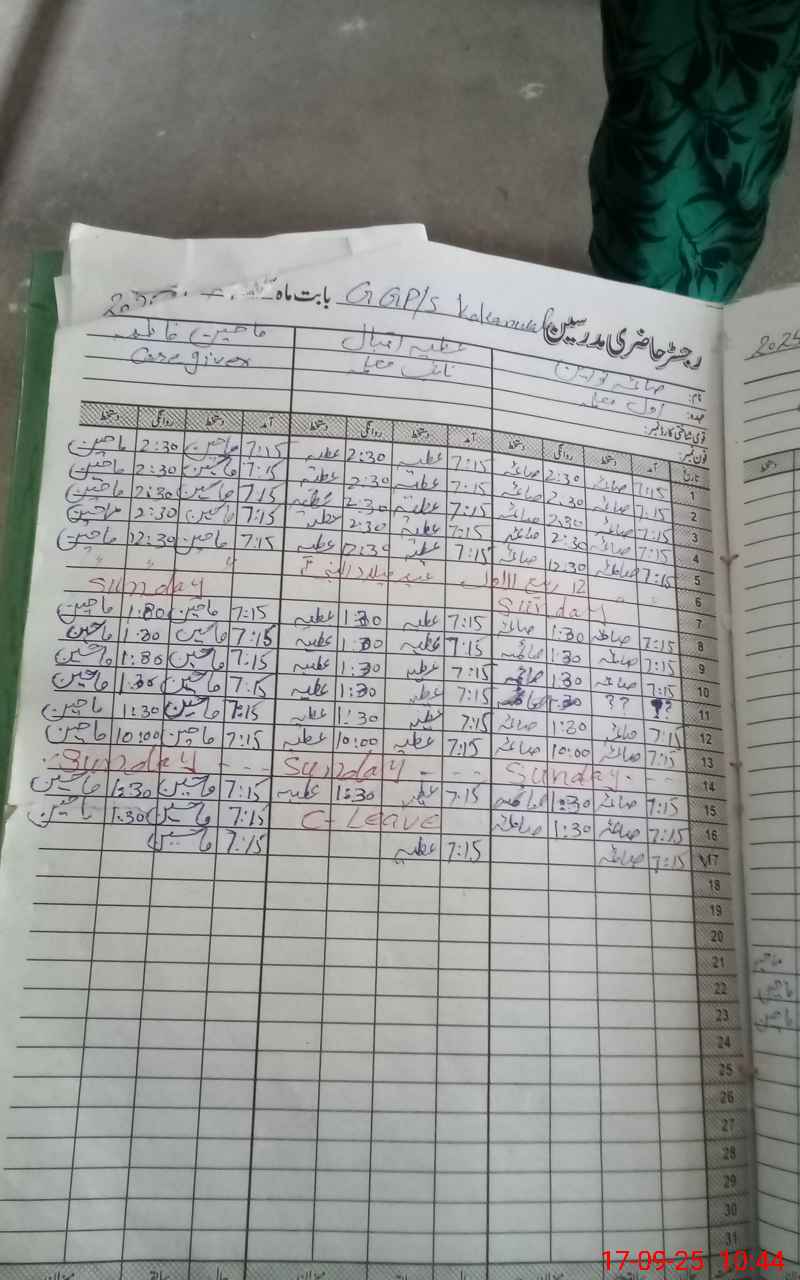 رجسٹر حاضری مدرسین GGP/S بابت ماہ
نام: صائمہ عطیہ اقبال ماحین فاطمہ
عہدہ: اول معلمہ نائب معلمہ Care giver
قومی شناختی کارڈ نمبر:
فون نمبر:
تاریخ آمد دستخط روانگی دستخط آمد دستخط روانگی دستخط آمد دستخط روانگی دستخط
1 7:15 صائمہ 2:30 صائمہ 7:15 عطیہ 2:30 عطیہ 7:15 ماحین 2:30 ماحین
2 7:15 صائمہ 2:30 صائمہ 7:15 عطیہ 2:30 عطیہ 7:15 ماحین 2:30 ماحین
3 7:15 صائمہ 2:30 صائمہ 7:15 عطیہ 2:30 عطیہ 7:15 ماحین 2:30 ماحین
4 7:15 صائمہ 2:30 صائمہ 7:15 عطیہ 2:30 عطیہ 7:15 ماحین 2:30 ماحین
5 7:15 صائمہ 12:30 صائمہ 7:15 عطیہ 12:30 عطیہ 7:15 ماحین 12:30 ماحین
6 12 ربیع الاول عید میلاد النبی
7 Sunday Sunday
8 7:15 صائمہ 1:30 صائمہ 7:15 عطیہ 1:30 عطیہ 7:15 ماحین 1:30 ماحین
9 7:15 صائمہ 1:30 صائمہ 7:15 عطیہ 1:30 عطیہ 7:15 ماحین 1:30 ماحین
10 7:15 صائمہ 1:30 صائمہ 7:15 عطیہ 1:30 عطیہ 7:15 ماحین 1:30 ماحین
11 ?? 1:30 صائمہ 7:15 عطیہ 1:30 عطیہ 7:15 ماحین 1:30 ماحین
12 7:15 صائمہ 1:30 صائمہ 7:15 عطیہ 1:30 عطیہ 7:15 ماحین 1:30 ماحین
13 7:15 صائمہ 10:00 صائمہ 7:15 عطیہ 10:00 عطیہ 7:15 ماحین 10:00 ماحین
14 Sunday Sunday Sunday
15 7:15 صائمہ 1:30 صائمہ 7:15 عطیہ 1:30 عطیہ 7:15 ماحین 1:30 ماحین
16 7:15 صائمہ 1:30 صائمہ C- LEAVE 7:15 ماحین 1:30 ماحین
17 7:15 صائمہ 7:15 عطیہ 7:15 ماحین
18
19
20
21
22
23
24
25
26
27
28
29
30
31
2025
دستخط
ماحین
ماحین
ماحین
17-09-25 10:44